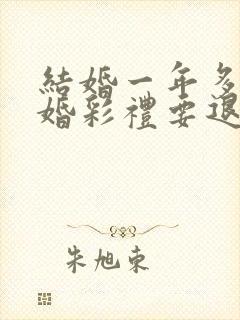 結婚一年多
婚彩禮要退
朱旭東